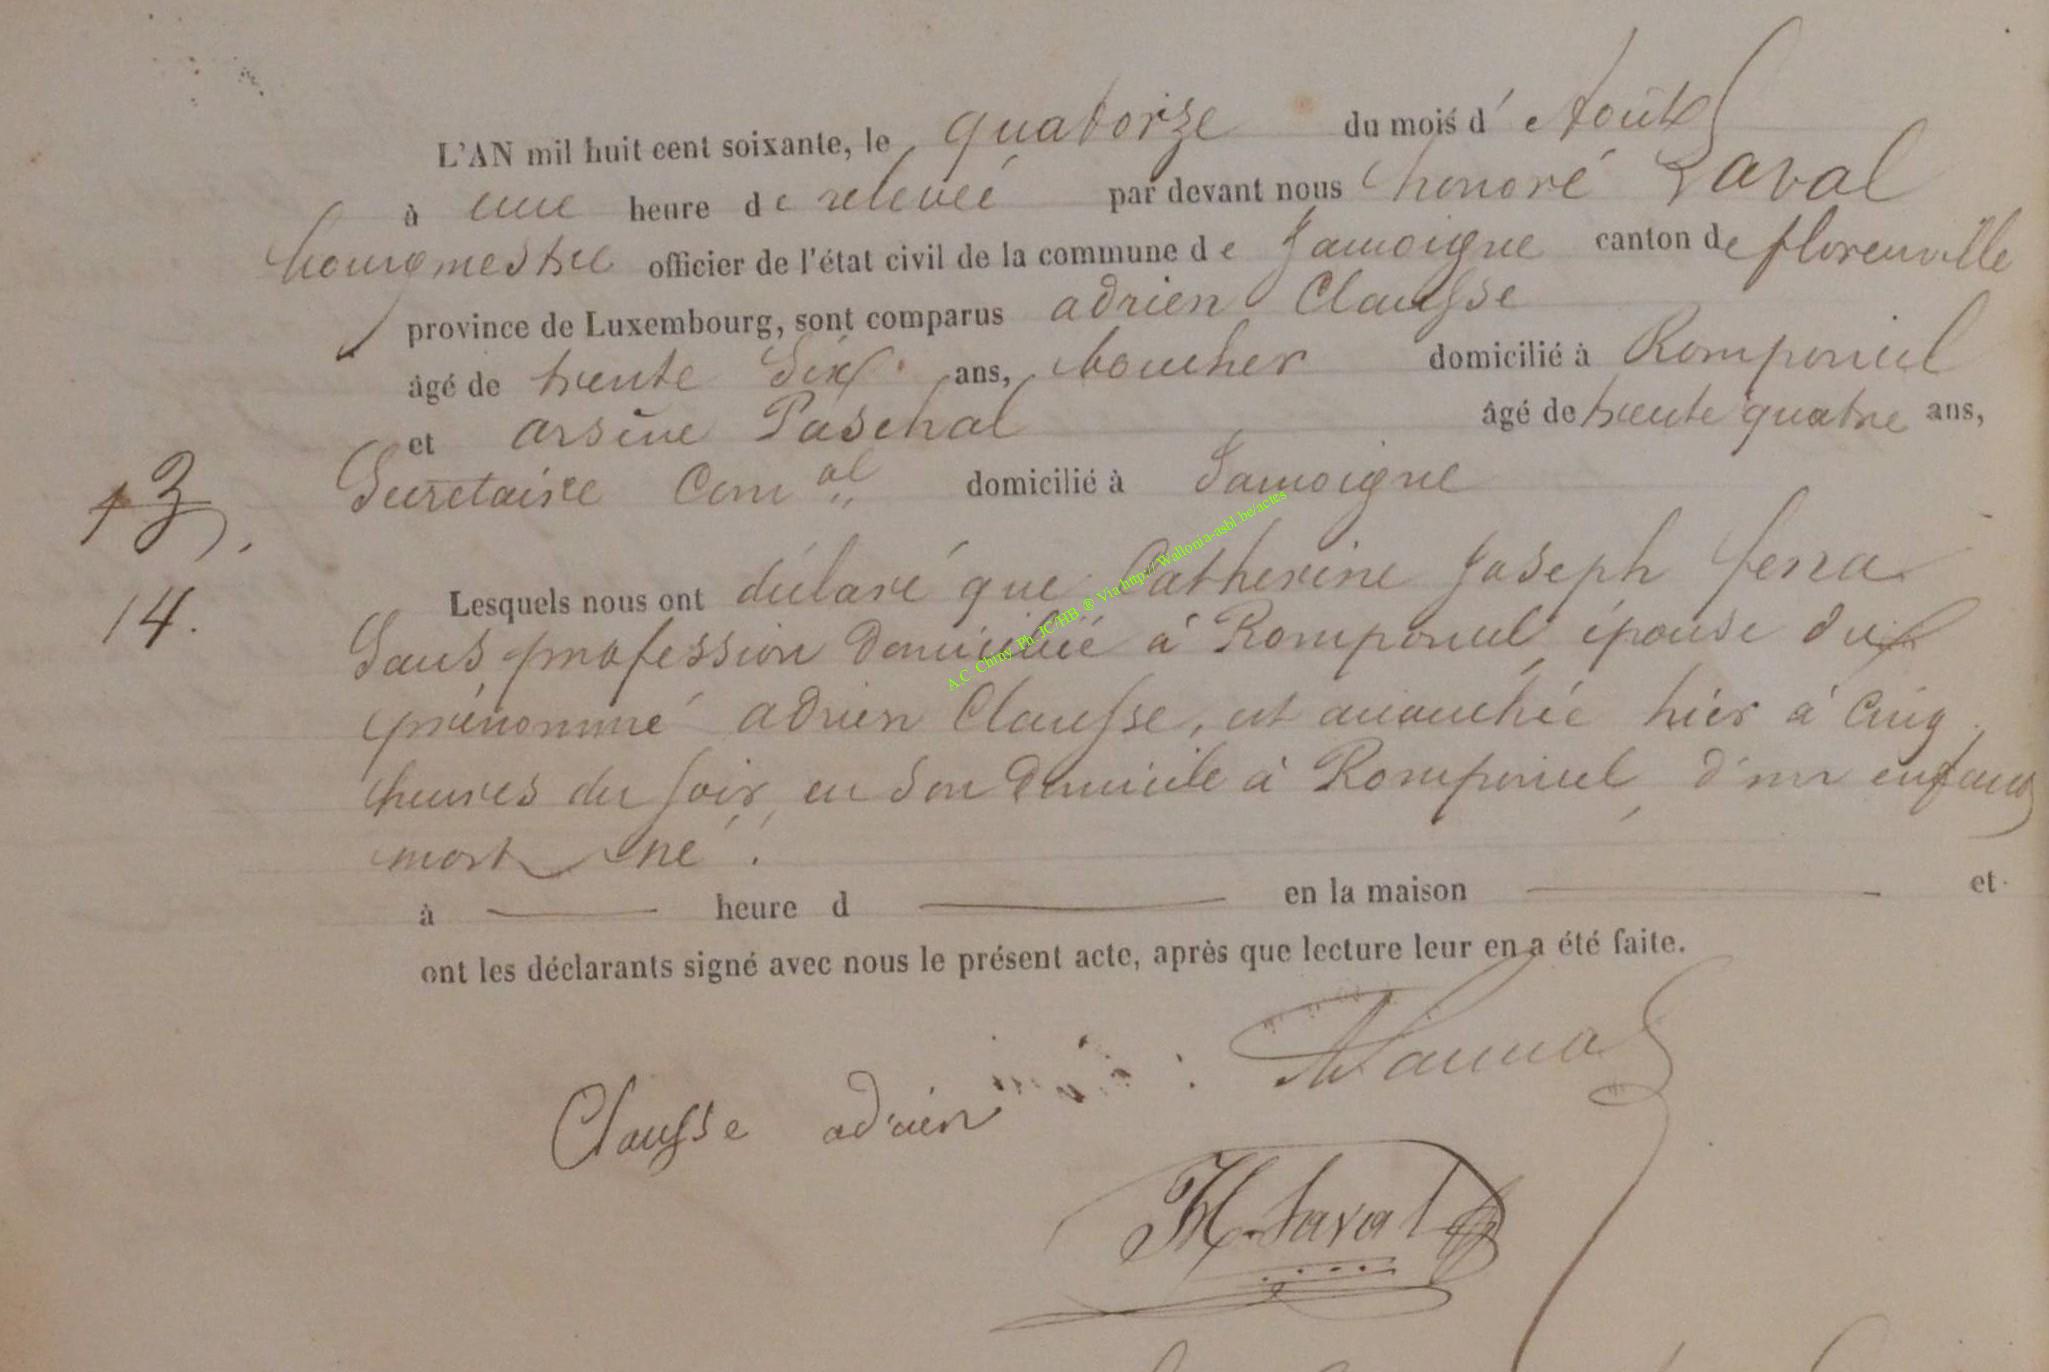 L'AN mil huit cent soixante, le quatorze du mois d' Août
à une heure de relevée par devant nous honoré Laval
bourgmestre officier de l'état civil de la commune de Jamoigne canton de florenville
province de Luxembourg, sont comparus adrien Clausse
âgé de trente Six ans, boucher domicilié à Romponcel
et arsène Paschal âgé de trente quatre ans,
Secretaire Com.al domicilié à Jamoigne
13.
14.
Lesquels nous ont déclaré que Catherine Joseph ferra
Sans profession domiciliée à Romponcel épouse du
prénommé adrien Clausse, est accouchée hier à Cinq
heures du soir en son domicile à Romponcel, d'un enfant
mort né.
à heure d en la maison et
ont les déclarants signé avec nous le présent acte, après que lecture leur en a été faite.
A.C. Chiny Ph JC/HB ® Via http://Wallonia-asbl.be/actes
Clausse adrien
H. Laval